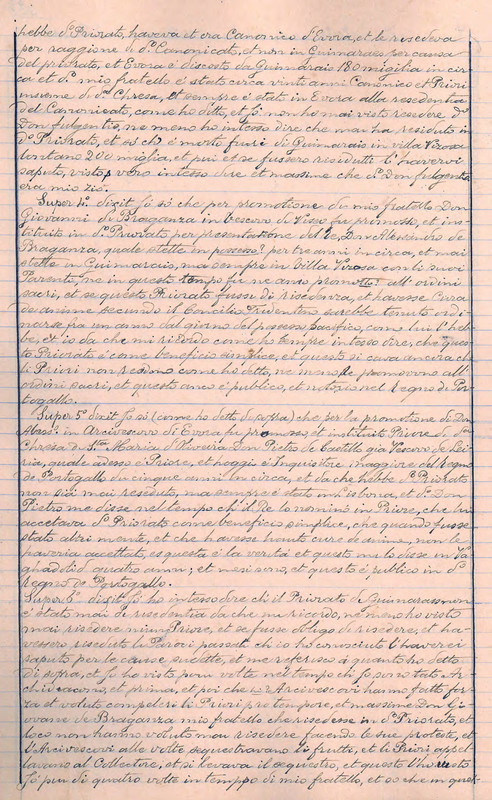 hebbe d.º Priorato, haveva et era Canonico d'Evora, et le risedeva
per raggione di d.º Canonicato, et non in Guimaraes per causa
del priorato, et Evora è discosto da Guimarais 180 miglia in cir
ca et d.º mio fratello è stato circa vinti anni Canonico et Priori
insieme di d.ª Chiesa, et sempre è stato in Evora alla residentia
del Canonicato, come ho ditto, et Jo non ho mai visto resedere d.º
Don fulgentio, ne meno ho inteso dire che mai ha residuto in
d.º Priorato, et so ch'è morto fuori di Guimarais in villa Viciosa
lontano 200 miglia, et pui et se fussero residutti l'haverei
saputo, visto, o vero inteso dire et massime che d.º Don fulgentio
era mio zio.
Super 4º dixit Jo sò che per promotione di mio fratello Don
Giovanni di Braganza in vescovo di Viseo fu promosso, et ins-
tituito in d.º Priorato per presentatione del Re, Don Alessandro de
Braganza, quale stette in possesso? per tre anni in circa, et mai
stette in Guimarais, ma sempre in Villa Viciosa con li suoi
Parenti, ne in questo tempo fu ne anco promosso? all'ordini
sacri, et se questo Priorato fusse di residenza, et havesse Cura
de anime secondo il Concilio Tridentino sarebbe tenuto ordi-
narse fra un anno dal giorno del possesso pacifico, come lui l'heb
be, et io da che mi ricordo come ho sempre inteso dire, che ques
to Priorato è come beneficio simplice, et questo si cava ancora che
li Priori non resedono come ho detto, ne meno se promovono all'
ordini sacri, et questo anco è publico, et notorio nel Regno de Por
togallo.
Super 5º dixit Jo sò (come ho detto di sopra) che per la promotione di Don
Aless.º in Arcivescovo di Evora fu promosso, et instituito Priore di d.ª
Chiesa di S.ta Maria d'Oliveira Don Pietro de Castello già Vescovo de Lei
ria, quale adesso è Priore, et hoggi è Inquisitore Maggiore del Regno
de Portogallo da cinque anni in circa, et da che hebbe d.º Priorato
non sia mai reseduto, ma sempre è stato in Lisbona, et d.º Don
Pietro me disse nel tempo ch'il Re lo nominò in Priore, che lui
accettava d.º Priorato come beneficio simplice, che quando fusse
stato altrimente, et che havesse havuto cure de anime, non le
haveria accettato, es questa è la verità et questo me lo disse in Va
ghadolid quatro anni, et mesi sono, et questo è publico in d.º
Regno de Portogallo.
Super 6º dixit Jo ho inteso dire ch'il Priorato de Guimaraes non
è stato mai di residentia da che mi ricordo, ne meno ho visto
mai risedere niun Priore, et se fusse obligo di risedere, et ha-
vessero riseduto li Priori passati ch'io ho conosciuto l'haverei
saputo per le cause sudette, et me referisco à quanto ho detto
di sopra, et Jo ho visto piu volte nel tempo ch'Jo sono stato Ar
chidiacono, et prima, et poi che li Arcivescovi hanno fatto for
za et voluto compelere li Priori pro tempore, et massime Don Gio
vanni de Braganza mio fratello che risedesse in d.º Priorato, et
loro non hanno voluto mai risedere facendo le sue proteste, et
l'Arcivescovi alle volte sequestravano li frutti, et li Priori appel
lavano al Collettore, et si levava il sequestro, et questo l'ho visto
Jo piu di quatro volte in tempo di mio fratello, et so che in ques